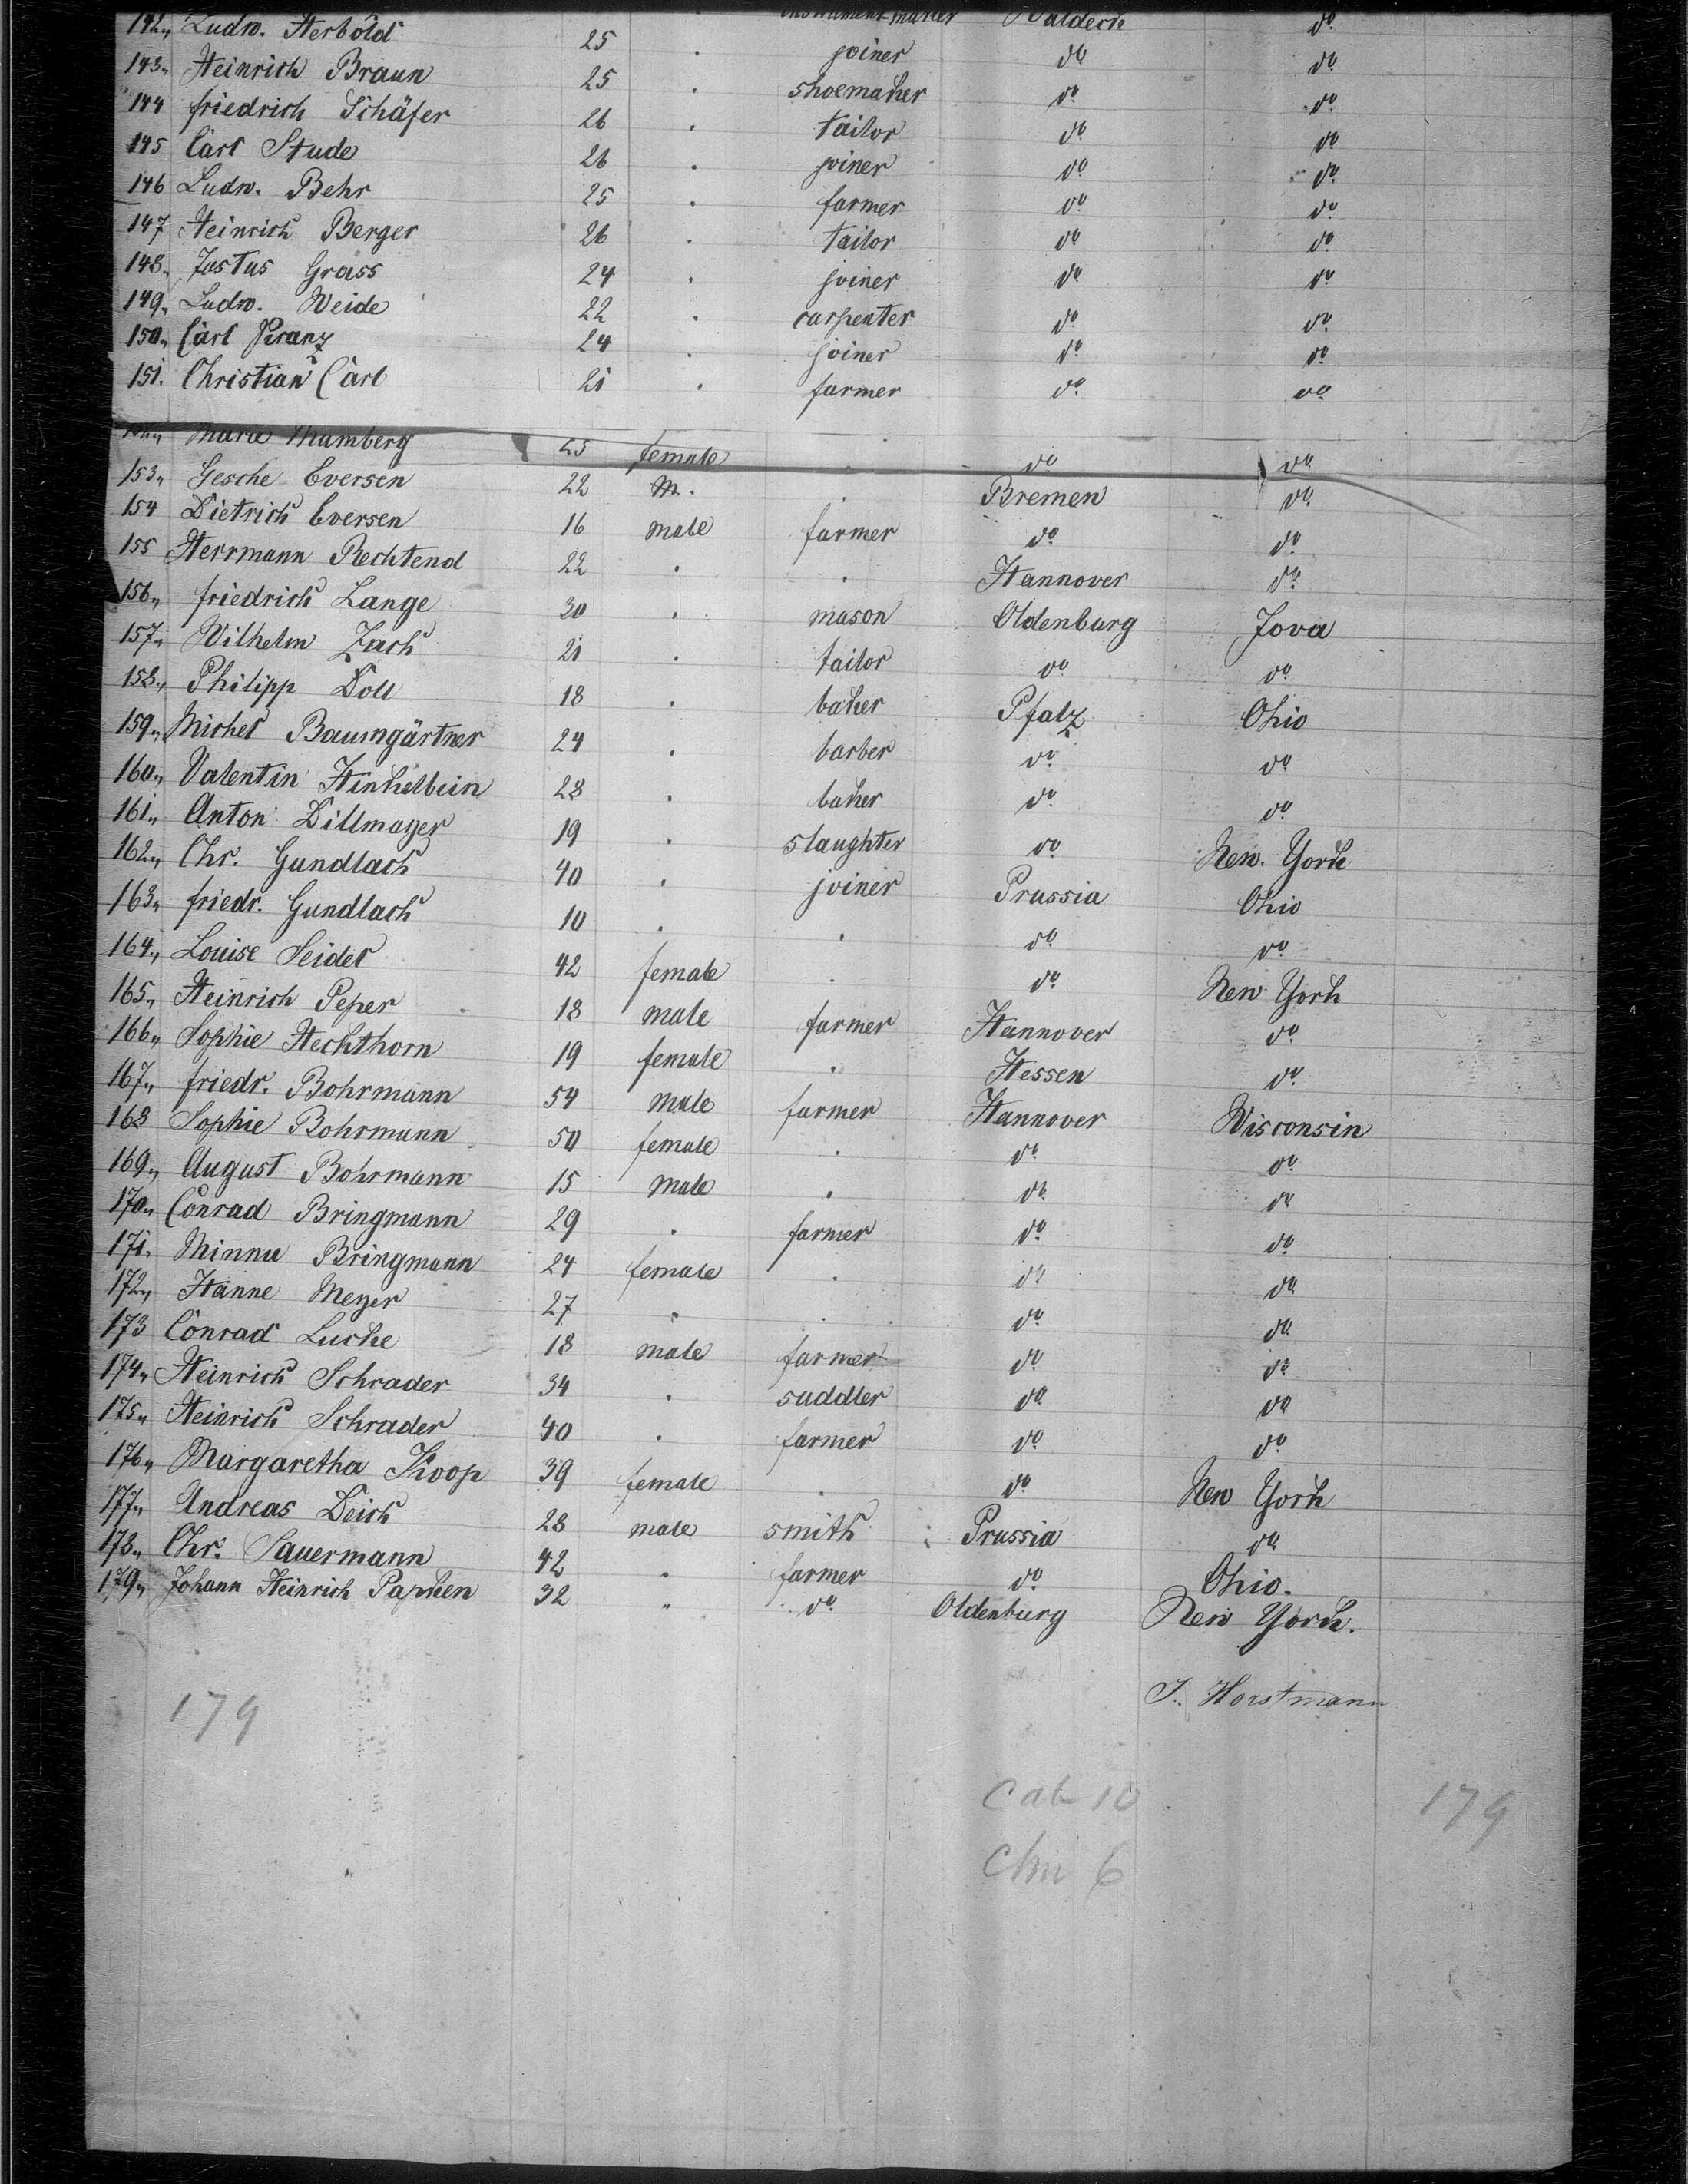 142., Ludw. Herbold 25 . instrument-maker Waldeck do
143., Heinrich Braun 25 . joiner do do
144 Friedrich Schäfer 26 . shoemaker do do
145 Carl Stude 26 . tailor do do
146 Ludw. Behr 25 . joiner do do
147 Heinrich Berger 26 . farmer do do
148., Justus Grass 24 . tailor do do
149., Ludw. Weide 22 . joiner do do
150., Carl Kranz 24 . carpenter do do
151. Christian Carl 21 . joiner do do
farmer do do
Marie Mumberg 25 female . do do
153., Gesche Eversen 22 m. . Bremen do
154 Dietrich Eversen 16 male farmer do do
155 Herrmann Rechtend 22 . . Hannover do
156., Friedrich Lange 30 . mason Oldenburg Jova
157., Wilhelm Zach 21 . tailor do do
158., Philipp Doll 18 . baker Pfalz Ohio
159., Michel Baumgärtner 24 . barber do do
160., Valentin Hinkelbein 28 . baker do do
161., Anton Dillmayer 19 . slaughter do New. York
162., Chr. Gundlach 40 . joiner Prussia Ohio
163., Friedr. Gundlach 10 . . do do
164., Louise Seidel 42 female . do New York
165., Heinrich Peper 18 male farmer Hannover do
166., Sophie Hechthorn 19 female . Hessen do
167., Friedr. Bohrmann 54 male farmer Hannover Wisconsin
168 Sophie Bohrmann 50 female . do do
169., August Bohrmann 15 male . do do
170., Conrad Bringmann 29 . farmer do do
171. Minna Bringmann 24 female . do do
172., Hanne Meyer 27 " . do do
173 Conrad Lucke 18 male farmer do do
174., Heinrich Schrader 34 . saddler do do
175., Heinrich Schrader 40 . farmer do do
176., Margaretha Koop 39 female . do New York
177., Andreas Deich 28 male smith Prussia do
178., Chr. Sauermann 42 " farmer do Ohio.
179., Johann Heinrich Papken 32 " do Oldenburg New York.
J. Horstmann
179
Cab 10 179
Chi 6